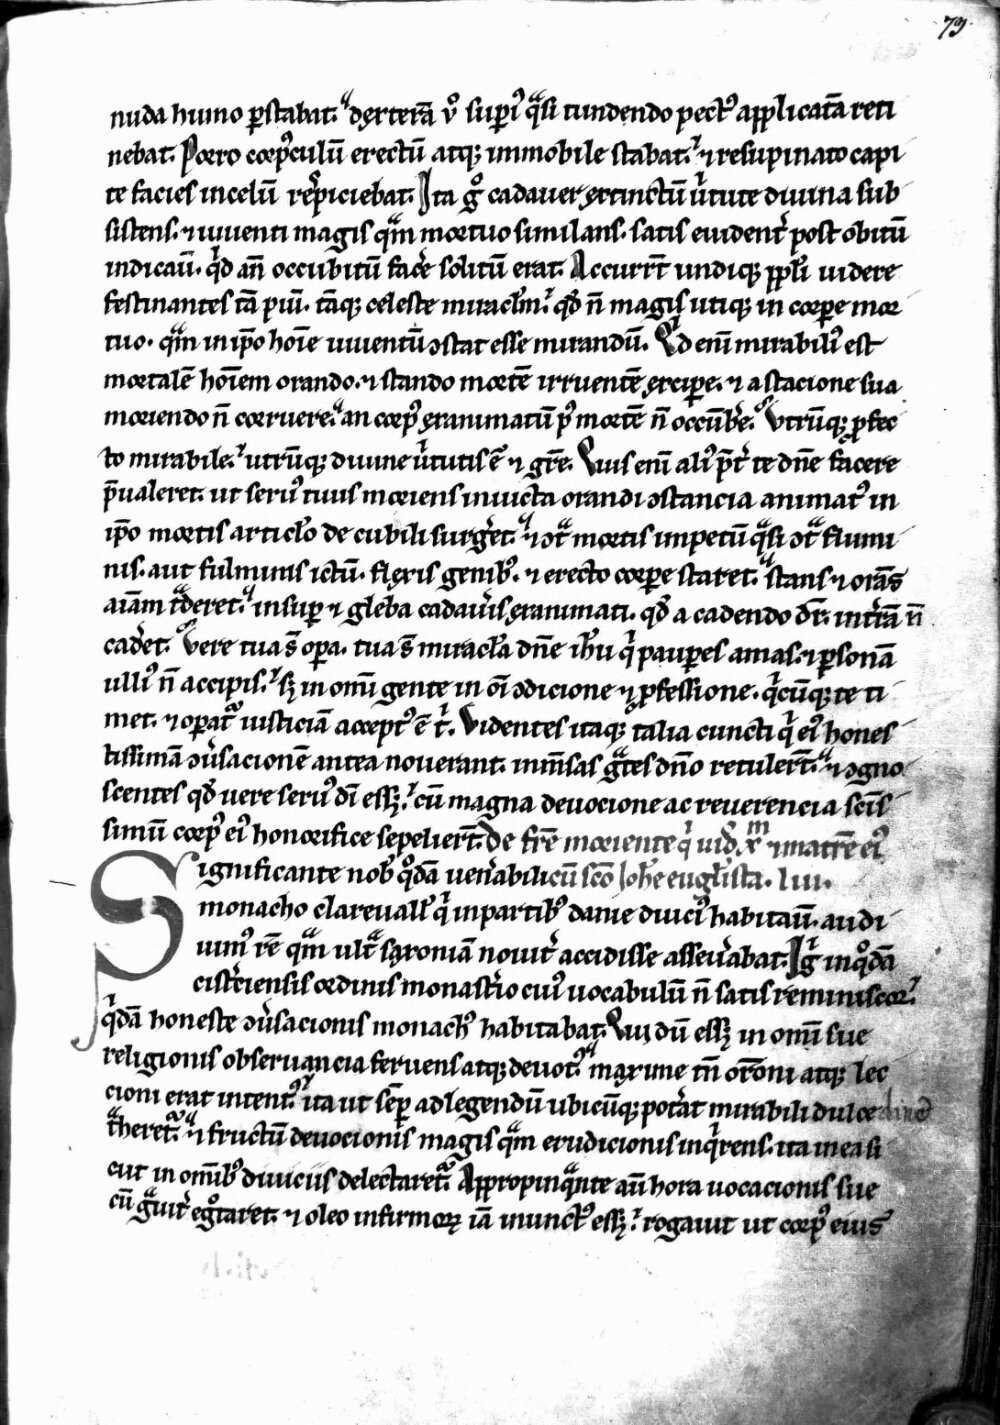 73
nuda humo ꝑstabat. dexterā v̊ suꝑi᷒ qͣsi tundendo pect᷒ applicatā reti
nebat. Porro corp᷒culū erectū atqꝫ immobile stabat. ⁊ resupinato capi
te facies in celū respiciebat. Ita gͦ cadauer extinctū v̓tute diuina sub
sistens. ⁊ uiuenti magis qͣm mortuo similans. satis euident̓ post obitū
indicauit. qͥd an̄ occubitū fac̓e solitū erat. Accurrt̄ undiqꝫ ppl̓i uidere
festinantes tā piū. tāqꝫ celeste miracl̓m. qd̓ n̄ magis utiqꝫ in corꝑe mor
tuo. qͣm in ip̄o hoīe uiuentū ↄstat esse mirandū. Qͥd enī mirabili᷒ est
mortalē hoīem orando. ⁊ stando mortē irruentē excipe. ⁊ a stacione sua
moriendo n̄ corruere. an corp᷒ exanimatū p᷒ mortē n̄ occūb̓e. Vtrūqꝫ ꝓfec
to mirabile. utrūqꝫ diuine v̓tutis ē ⁊ gr̄e. Quis enī ali᷒ p̄t̓ te dn̄e facere
p̄ualeret. ut seru᷒ tuus moriens inuicta orandi ↄstancia animat᷒ in
ip̄o mortis articl̓o de cubili surg̓et. ⁊ ↄtͣ mortis impetū qͣsi ↄtͣ flumi
nis. aut fulminis ictū. flexis genib᷒. ⁊ erecto corꝑe staret. stans ⁊ orās
aīam tͣderet. insuꝑ ⁊ gleba cadau̓is exanimati. qd̓ a cadendo dr̄. in tr̄ā n̄
cad̓et. Vere tua s̄ oꝑa. tua s̄ miracl̓a dn̄e ih̓u qͥ pauꝑes amas. ⁊ ꝑsonā
ulli᷒ n̄ accipis. sꝫ in omī gente in oī ↄdicione ⁊ ꝓfessione. qͥcūqꝫ te ti
met. ⁊ oꝑatͣ iusticiā accept᷒ ē t̓. Videntes itaqꝫ talia cuncti qͥ ei᷒ hones
tissimā ↄu̓sacionē antea nouerant. inm̄sas gͣtes dn̄o retulert̄. ⁊ ↄgno
scentes qd̓ vere seru᷒ dī essꝫ. cū magna deuocione ac reuerencia sc̄is
simū corp᷒ ei᷒ honorifice sepeliert̄. De fr̄e moriente qͥ uid̓ xͫ ⁊ matrē ei᷒
Significante nob̓ qͦdā uen̓abili cū sc̄o Ioh̓e eugl̓ista. liii.
monacho clareuall̓ qͥ in partib᷒ danie diuci᷒ habitauit. audi
uim᷒ rē qͣm ultͣ saxoniā nouit̓ accidisse asseu̓abat. Igͥ in qͦdā
cist̓ciensis ordinis monast̓io cui᷒ uocabulū n̄ satis reminiscor.
qͥdā honeste ↄu̓sacionis monach᷒ habitabat. Qui dū essꝫ in omī sue
religionis obseruancia feruens atqꝫ deuot᷒. maxime tn̄ or̄oni atqꝫ lec
cioni erat intent᷒. ita ut sēꝑ ad legendū ubicūqꝫ pot̓at mirabili dulcedine
tͣheretͬ. ⁊ fructū deuocionis magis qͣm erudicionis inqͥrens. ita in ea si
cut in omīb᷒ diuiciis delectaretͬ. Appropinqͣnte aūt hora uocacionis sue
cū gͣuit̓ egͦtaret. ⁊ oleo infirmoꝝ iā inunct᷒ essꝫ. rogauit ut corp᷒ eius